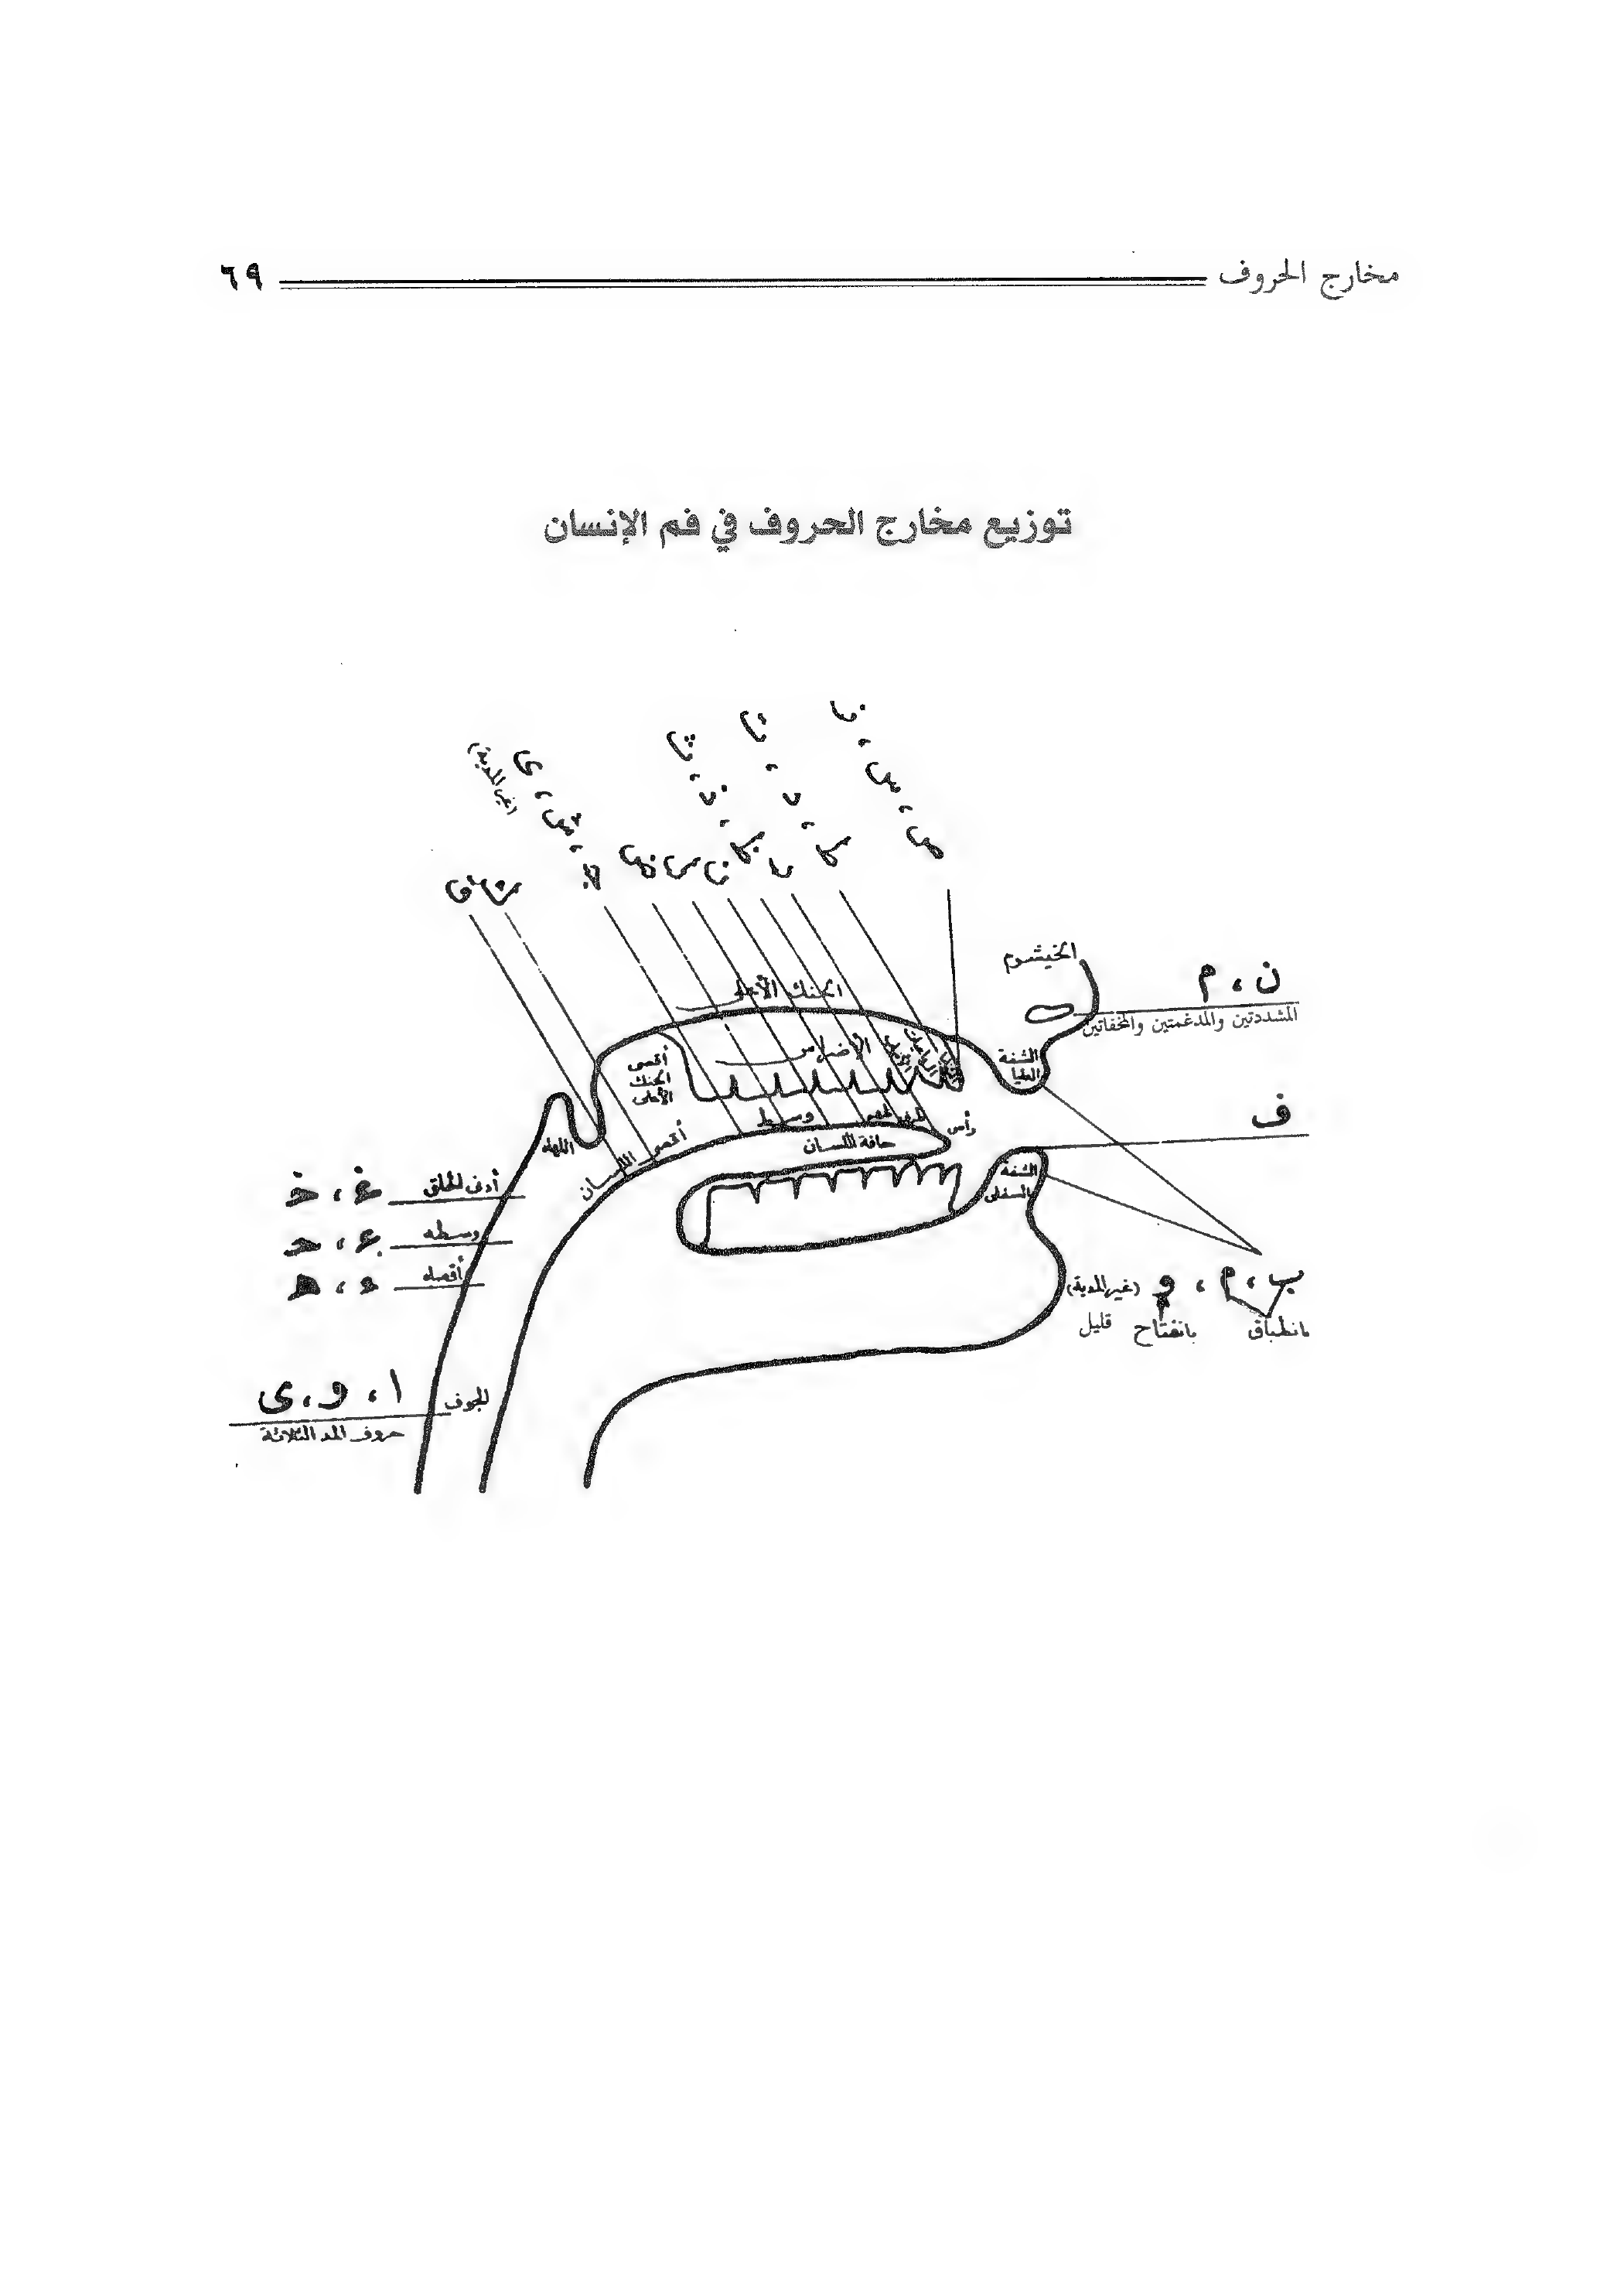 مخارج الحروف ٦٩
توزيع مخارج الحروف في فم الإنسان
ص، س، ز
ط، د، ت
ر
ظ، ذ، ث
ن
ل
ض
ج، ش، ى
(غير المدية)
ك
ق
الخيشوم
ن، م
المشددتين والمدغمتين والمخفاتين
الحنك الأعلى
الأضراس
أقصى
الحنك
الأعلى
الشفة
العليا
ف
رأس
وسط
حافة اللسان
أقصى اللسان
اللهاة
الشفة
السفلى
أدنى الحلق غ، خ
وسطه ع، ح
أقصاه ء، هـ
ب، م، و (غير المدية)
بانطباق بانفتاح قليل
الجوف ا، و، ى
حروف المد الثلاثة